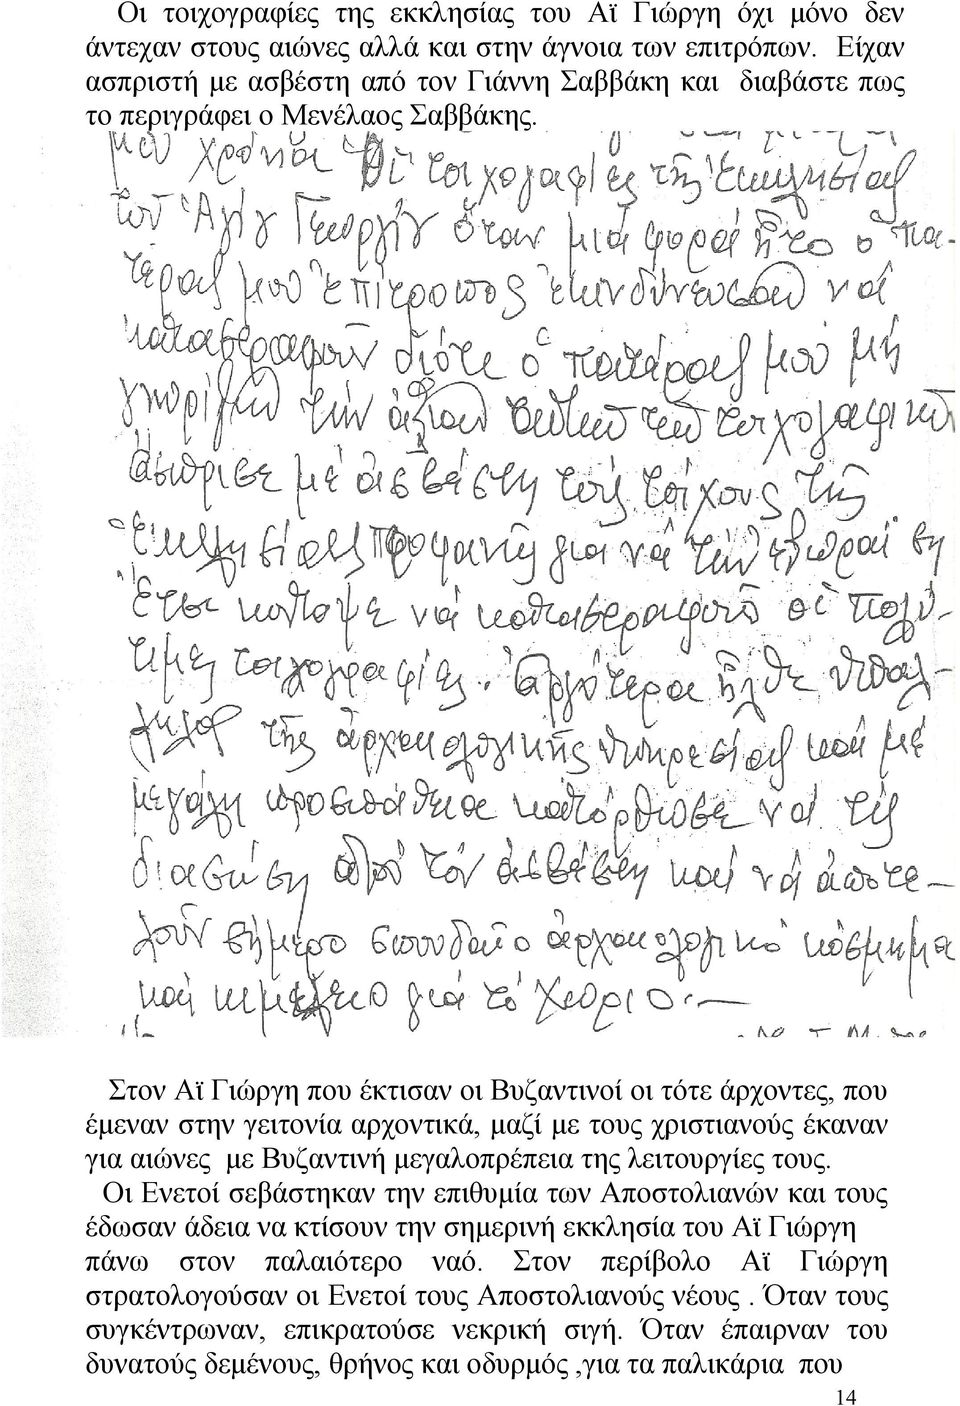 Οι τοιχογραφίες της εκκλησίας του Αϊ Γιώργη όχι μόνο δεν
άντεχαν στους αιώνες αλλά και στην άγνοια των επιτρόπων. Είχαν
ασπριστή με ασβέστη από τον Γιάννη Σαββάκη και διαβάστε πως
το περιγράφει ο Μενέλαος Σαββάκης.
μου χρόνοι Οἱ τοιχογαφίες τῆς Ἐκκλησίας
τοῦ Ἁγίου Γεωργίου ὅταν μιά φορά ἦτο ὁ πα-
τέρας μου ἐπίτροπος ἐκινδύνευσαν νά
καταστραφοῦν διότι ὁ πατέρας μου μή
γνωρίζων τήν ἀξίαν αὐτῶν τῶν τοιχογαφικῶν
ἄσπρισε μέ ἀσβέστη τούς τοίχους τῆς
Ἐκκλησίας προφανῶς γιά νά τήν
Ἔτσι κόντεψε νά καταστραφοῦν οἱ πολύ-
τιμες τοιχογραφίες. Ἀργότερα ἦλθε ὑπαλ-
ληλος τῆς ἀρχαιολογικῆς ὑπηρεσίας καί μέ
μεγάλη προσπάθεια κατόρθωσε νά τίς
διασώση ἀπό τόν ἀσβέστη καί νά ἀποτε-
λοῦν σήμερο σπουδαῖο ἀρχαιολογικό κόσμημα
καί κειμήλειο γιά τό Χωριό.-
Στον Αϊ Γιώργη που έκτισαν οι Βυζαντινοί οι τότε άρχοντες, που
έμεναν στην γειτονία αρχοντικά, μαζί με τους χριστιανούς έκαναν
για αιώνες με Βυζαντινή μεγαλοπρέπεια της λειτουργίες τους.
Οι Ενετοί σεβάστηκαν την επιθυμία των Αποστολιανών και τους
έδωσαν άδεια να κτίσουν την σημερινή εκκλησία του Αϊ Γιώργη
πάνω στον παλαιότερο ναό. Στον περίβολο Αϊ Γιώργη
στρατολογούσαν οι Ενετοί τους Αποστολιανούς νέους . Όταν τους
συγκέντρωναν, επικρατούσε νεκρική σιγή. Όταν έπαιρναν του
δυνατούς δεμένους, θρήνος και οδυρμός ,για τα παλικάρια που
14